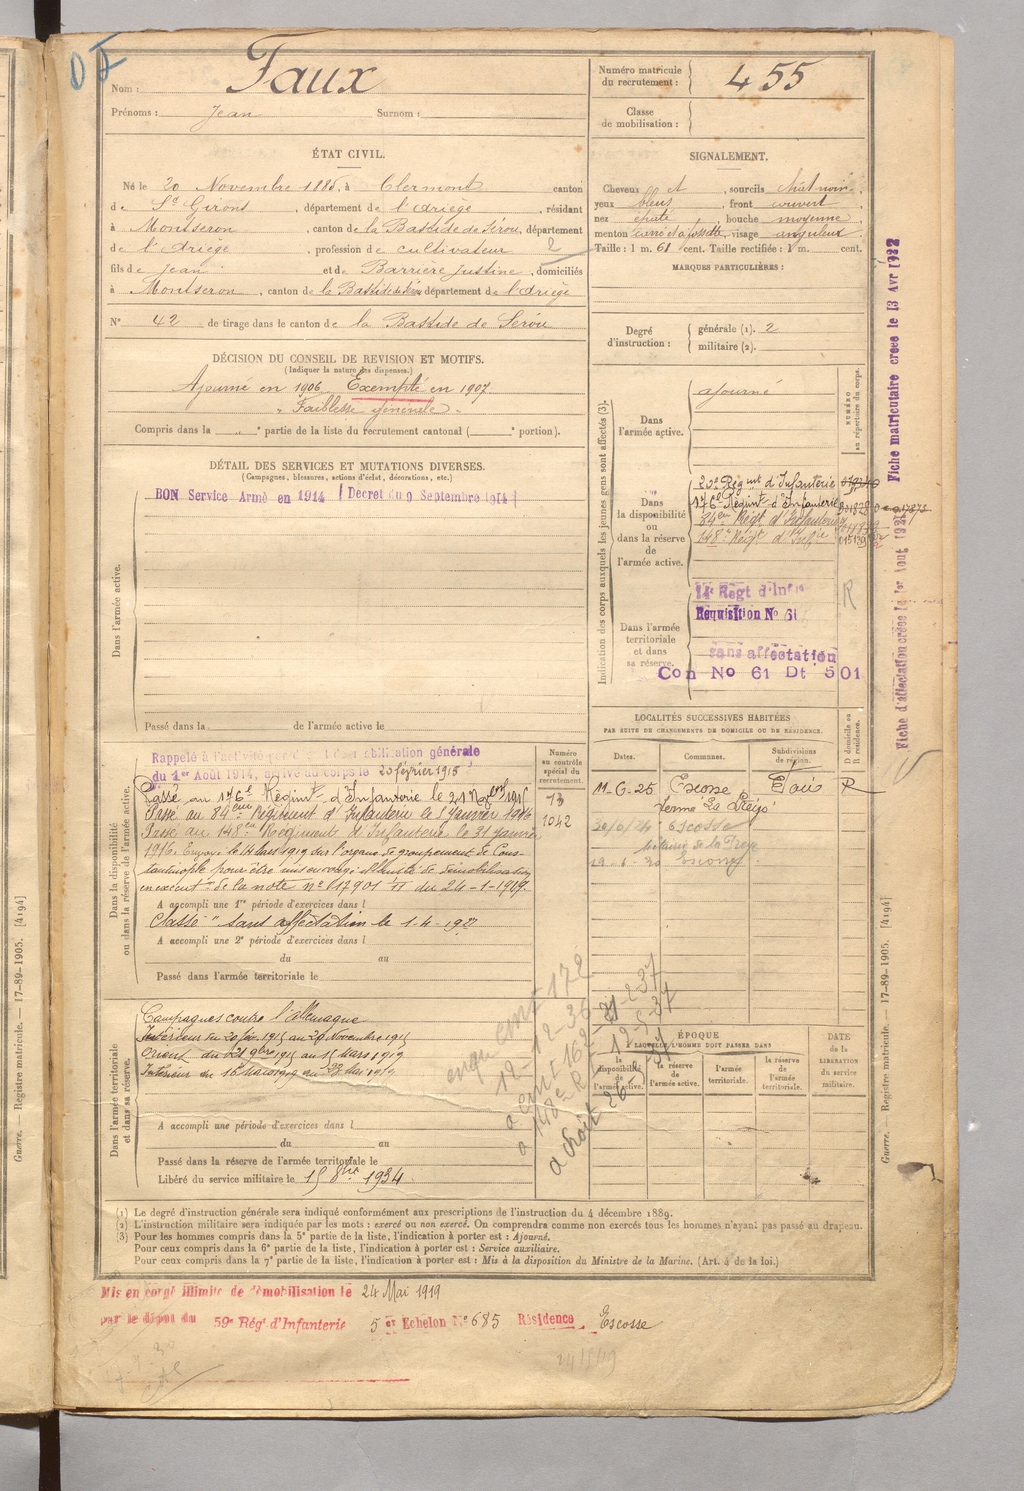 Nom : Faux
Prénoms : Jean Surnom :
ÉTAT CIVIL.
Né le 20 Novembre 1885, à Clermont canton
de St Girons, département de l'Ariège, résidant
à Montseron, canton de la Bastide de Sérou, département
de l'Ariège, profession de cultivateur 2
fils de Jean et de Barrère Justine, domiciliés
à Montseron, canton de la Bastide de Sérou département de l'Ariège
N° 42 de tirage dans le canton de la Bastide de Sérou
DÉCISION DU CONSEIL DE REVISION ET MOTIFS.
(Indiquer la nature des dispenses.)
Ajourné en 1906 Exempté en 1907
"Faiblesse générale"
Compris dans la e partie de la liste du recrutement cantonal ( e portion).
DÉTAIL DES SERVICES ET MUTATIONS DIVERSES.
(Campagnes, blessures, actions d'éclat, décorations, etc.)
BON Service Armé en 1914 (Decret du 9 Septembre 1914)
Dans l'armée active.
Passé dans la de l'armée active le
Dans la disponibilité
ou dans la réserve de l'armée active.
Rappelé à l'activité générale
du 1er Août 1914, arrivé au corps le 20 février 1915
Passé au 176e Régiment d'Infanterie le 21 1915
Passé au 34eme Régiment d'Infanterie le 5 Janvier 1916
Passé au 148eme Régiment d'Infanterie le 31 Janvier
1916. Envoyé le 14 Mars 1919 sur l'organe de groupement de Cons-
tantinople pour être mis en congé illimité de démobilisation
en exécution de la note n° 12901 du 24-1-1919.
A accompli une 1re période d'exercices dans l
Classé "sans affectation le 1-4-1927
A accompli une 2e période d'exercices dans l
du au
Passé dans l'armée territoriale le
Numéro
au contrôle
spécial du
recrutement.
13
1042
Dans l'armée territoriale
et dans sa réserve.
Campagnes contre l'allemagne
Intérieur du 20 fév. 1915 au 20 Novembre 1915
Orient du 21 9bre 1915 au 15 Mars 1919
Intérieur du 16 Mars 1919 au 23 Mai 1919
A accompli une période d'exercices dans l
du au
Passé dans la réserve de l'armée territoriale le
Libéré du service militaire le 15 8bre 1934
Numéro matricule
du recrutement : 455
Classe
de mobilisation :
SIGNALEMENT.
Cheveux et, sourcils chat noirs
yeux bleus, front couvert
nez épaté, bouche moyenne
menton carré et à fossette, visage anguleux
Taille : 1 m. 61 cent. Taille rectifiée : 1 m. cent.
MARQUES PARTICULIÈRES :
Degré
d'instruction :
générale (1). 2
militaire (2).
Indication des corps auxquels les jeunes gens sont affectés (3).
NUMÉRO
au répertoire du corps.
Dans
l'armée active.
ajourné
Dans
la disponibilité
ou
dans la réserve
de
l'armée active.
20e Régmt d'Infanterie
176e Régimt d'Infanterie
34em Régt d'Infanterie
148e Régt d'Infie
Dans l'armée
territoriale
et dans
sa réserve.
14e Regt d'Infie R
Requisition No 61
sans affectation
Con No 61 Dt 501
LOCALITÉS SUCCESSIVES HABITÉES
PAR SUITE DE CHANGEMENTS DE DOMICILE OU DE RÉSIDENCE.
Dates. Communes. Subdivisions
de région. D domicile ou
R résidence.
11-6-25 Escosse Foix R
ferme "La Preijo"
30/6/24 Escosse
métairie de la Prejo
19-6-30 Escosse
ÉPOQUE
À LAQUELLE L'HOMME DOIT PASSER DANS
la
disponibilité
de
l'armée active.
la réserve
de
l'armée active.
l'armée
territoriale.
la réserve
de
l'armée
territoriale.
DATE
de la
LIBÉRATION
du service
militaire.
(1) Le degré d'instruction générale sera indiqué conformément aux prescriptions de l'instruction du 4 décembre 1889.
(2) L'instruction militaire sera indiquée par les mots : exercé ou non exercé. On comprendra comme non exercés tous les hommes n'ayant pas passé au drapeau.
(3) Pour les hommes compris dans la 5e partie de la liste, l'indication à porter est : Ajourné.
Pour ceux compris dans la 6e partie de la liste, l'indication à porter est : Service auxiliaire.
Pour ceux compris dans la 7e partie de la liste, l'indication à porter est : Mis à la disposition du Ministre de la Marine. (Art. 4 de la loi.)
Mis en congé illimité de démobilisation le 24 Mai 1919
par le dépôt du 59e Régt d'Infanterie 5er Echelon N° 685 Résidence Escosse
Fiche matriculaire créée le 13 Avr 1922
Fiche d'affectation créée le 1er Aout 192
Guerre. — Registre matricule. — 17-89-1905. [4194]
Guerre. — Registre matricule. — 17-89-1905. [4194]